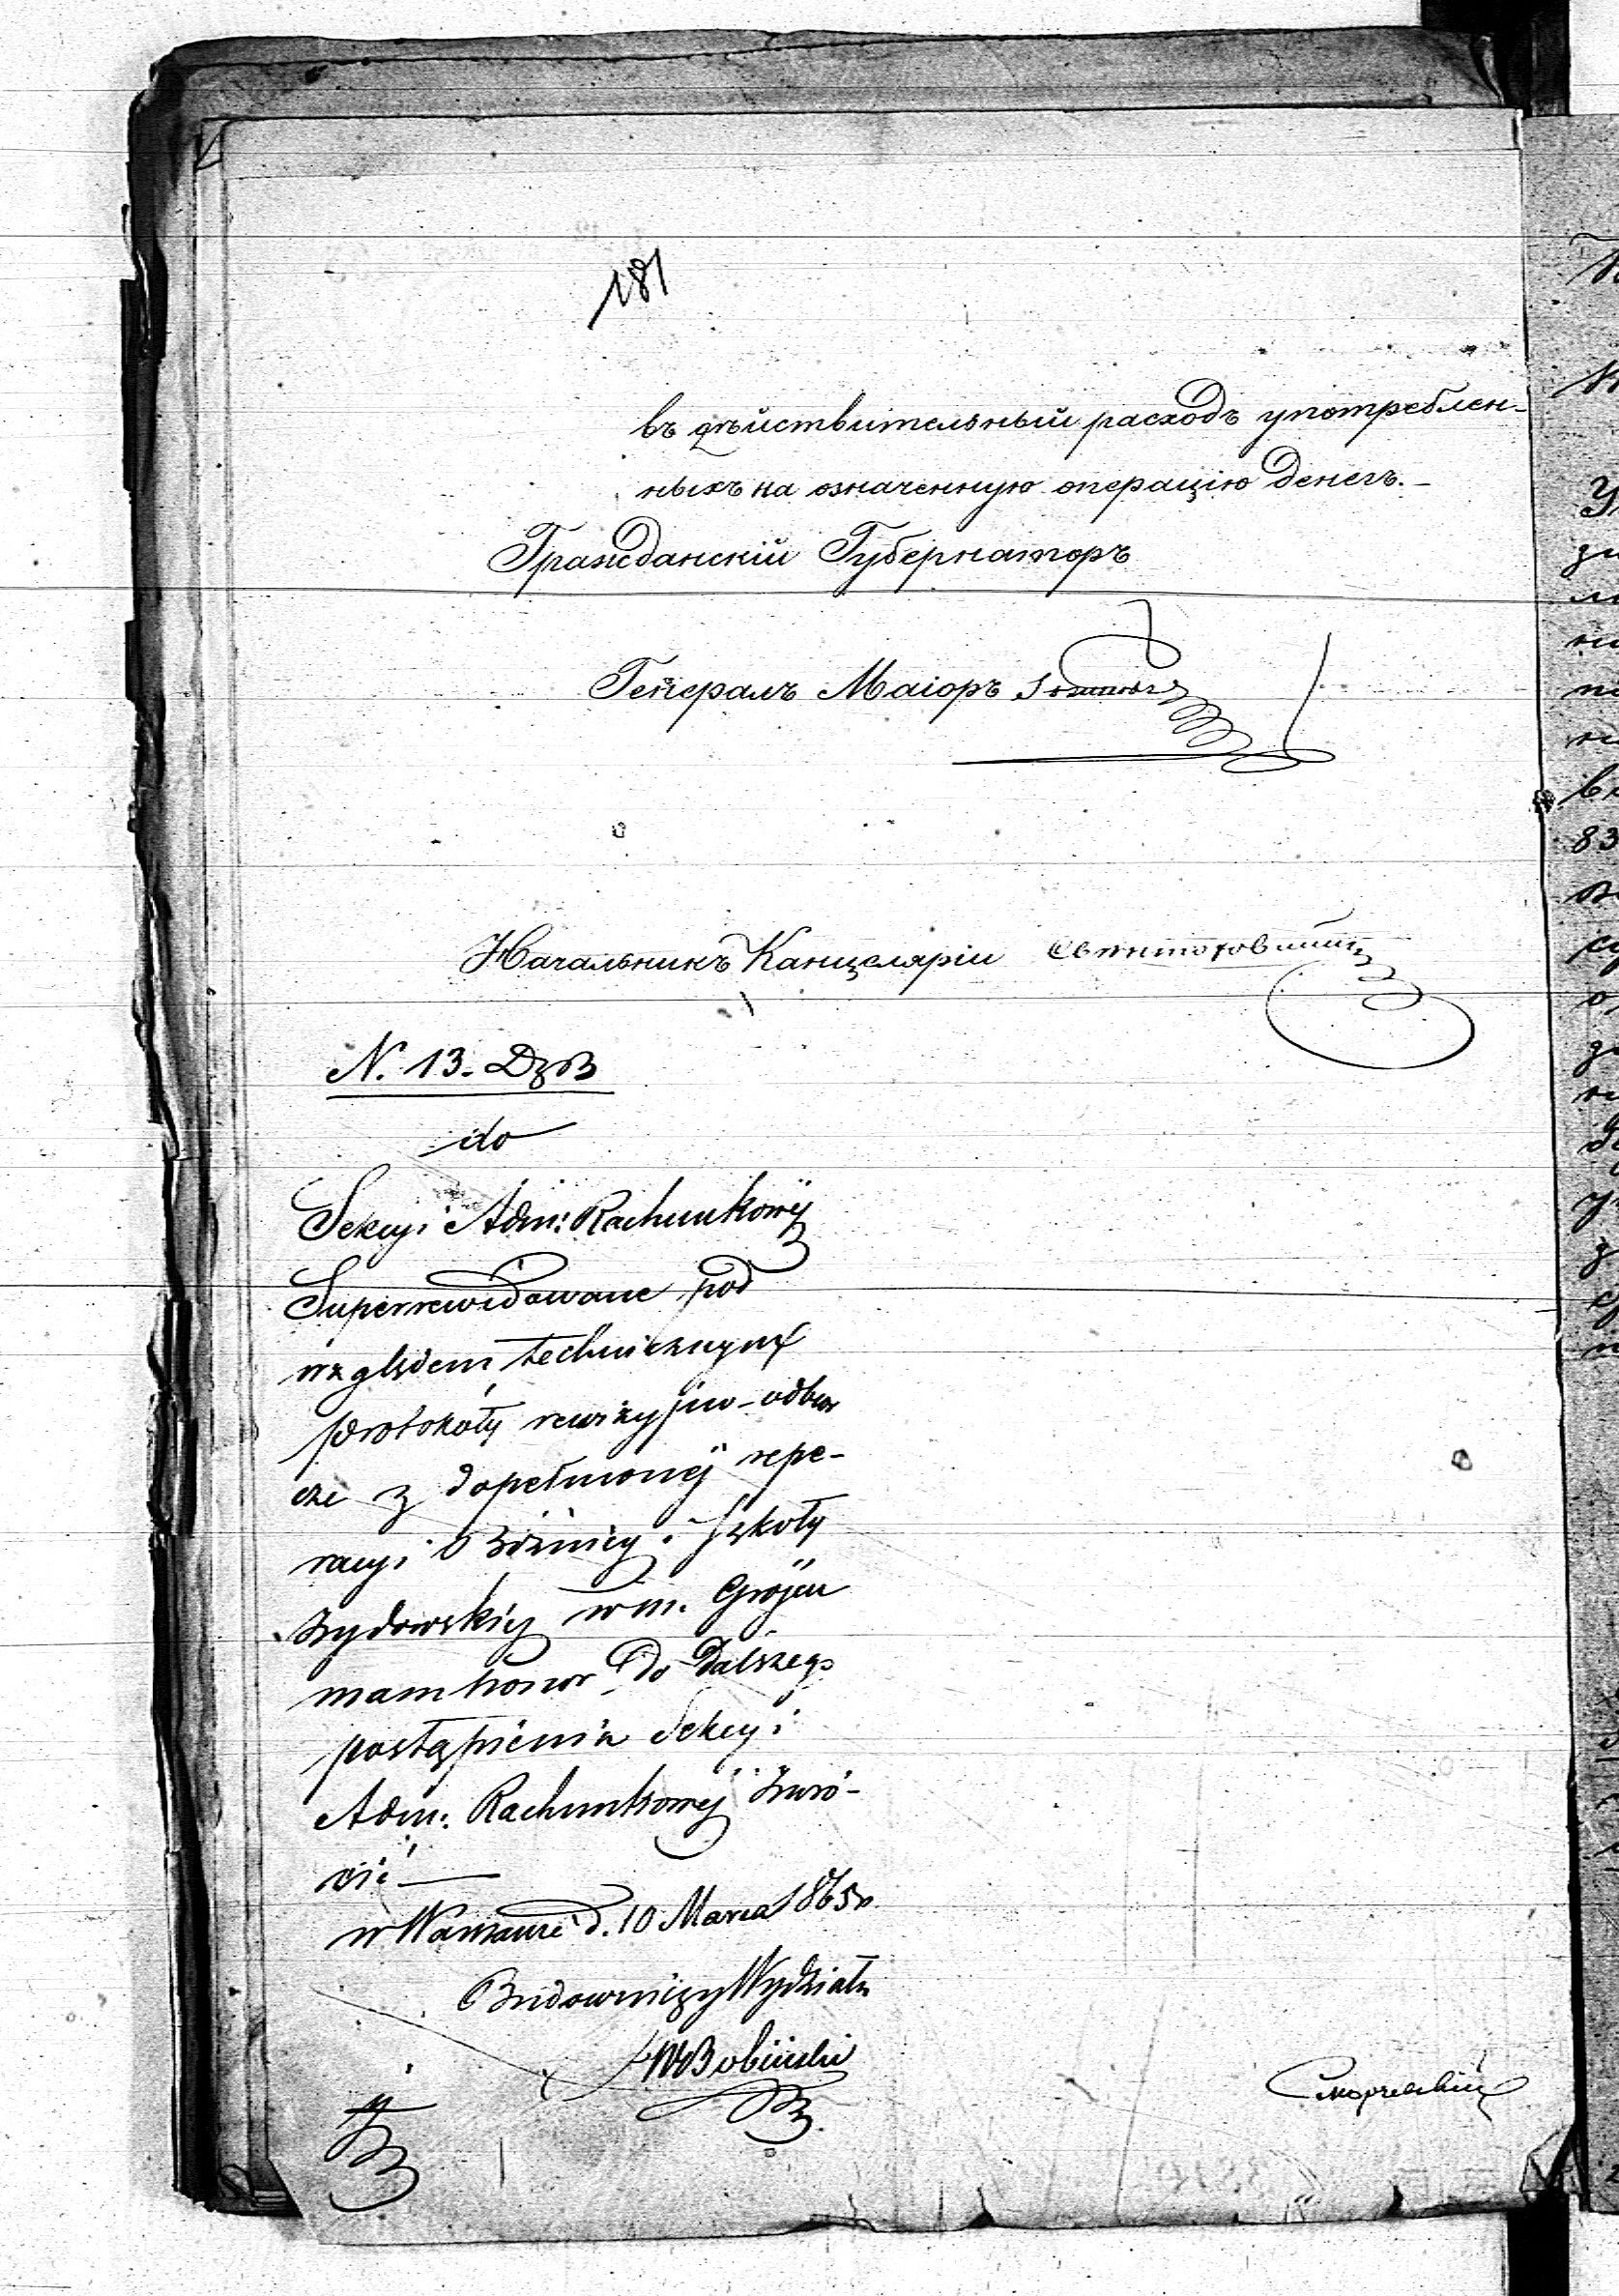 181
въ дѣйствительный расходъ употреблен-
ныхъ на означенную операцію денегъ.-
Гражданскій Губернаторъ
Генералъ Маіоръ
Начальникъ Канцеляріи
N. 13. DzB
do
Sekcyi Adm: Rachunkowéj
Superrewidowane pod
względem technicznym
protokoły rewizyjno-odbior
cze z dopełnionéj repe-
racyi Bóżnicy i Szkoły
Żydowskiéj w m. Grójcu
mam honor do dalszego
postąpienia Sekcyi
Adm: Rachunkowéj zwró-
cić
w Warszawie d. 10 Marca 1865 r.
Budowniczy Wydziału